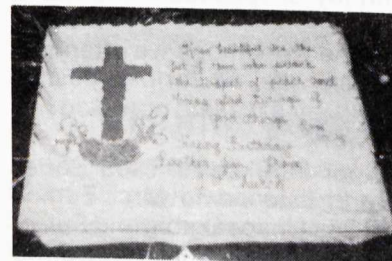 How beautiful are the
feet of them who preach
the Gospel of peace and
bring glad tidings of
good things
Rom
Happy Birthday
from
Church